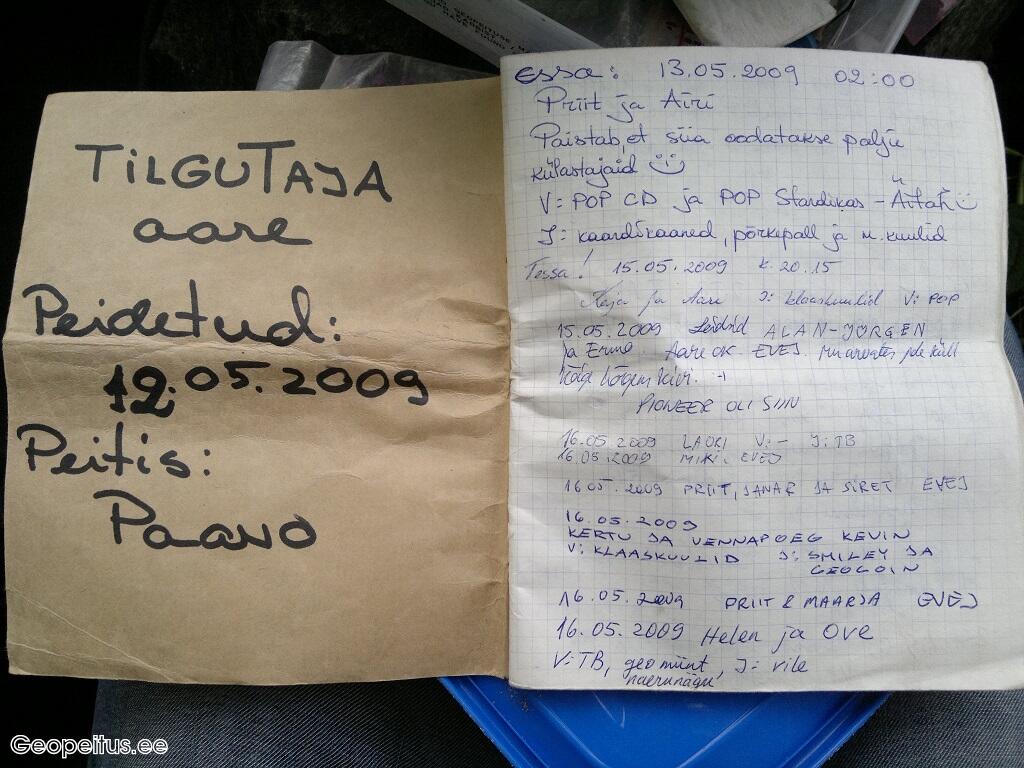 TILGUTAJA
aare
Peidetud:
12.05.2009
Peitis:
Paavo
Essa: 13.05.2009 02:00
Priit ja Airi
Paistab, et siia oodatakse palju
külastajaid
V: POP CD ja POP Stardikas - Aitäh
J: kaardikaaned, põrkepall ja m. kuulid
Tessa! 15.05.2009 k. 20.15
Kaja ja Aare J: klaaskuulid V: POP
15.05.2009 Leidsid ALAN-JÖRGEN
ja Ermo. Aare OK. EVEJ.
PIONEER OLI SIIN
16.05.2009 LAURI V: - J: TB
16.05.2009 MIKI. EVEJ
16.05.2009 PRIIT, JANAR JA SIRET EVEJ
16.05.2009
KERTU JA VENNAPOEG KEVIN
V: KLAASKUULID J: SMILEY JA
GEOCOIN
16.05.2009 PRIIT & MAARJA EVEJ
16.05.2009 Helen ja Ove
V: TB, geomünt, J: vile
naerunägu
Geopeitus.ee